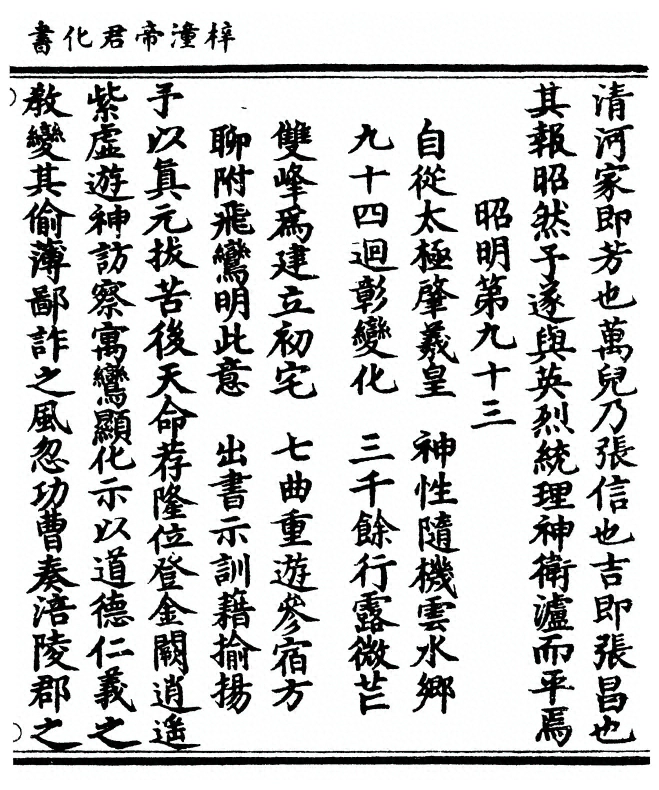 梓潼帝君化書
清河家即芳也萬兒乃張信也吉即張昌也
其報昭然予遂與英烈統理神衛瀘而平焉
昭明第九十三
自從太極肇羲皇　神性隨機雲水鄉
九十四迴彰變化　三千餘行露微芒
雙峰爲建立初宅　七曲重遊參宿方
聊附飛鸞明此意　出書示訓藉揄揚
予以眞元拔苦後天命荐隆位登金闕逍遥
紫虛遊神訪察寓鸞顯化示以道德仁義之
教變其偷薄鄙詐之風忽功曹奏涪陵郡之